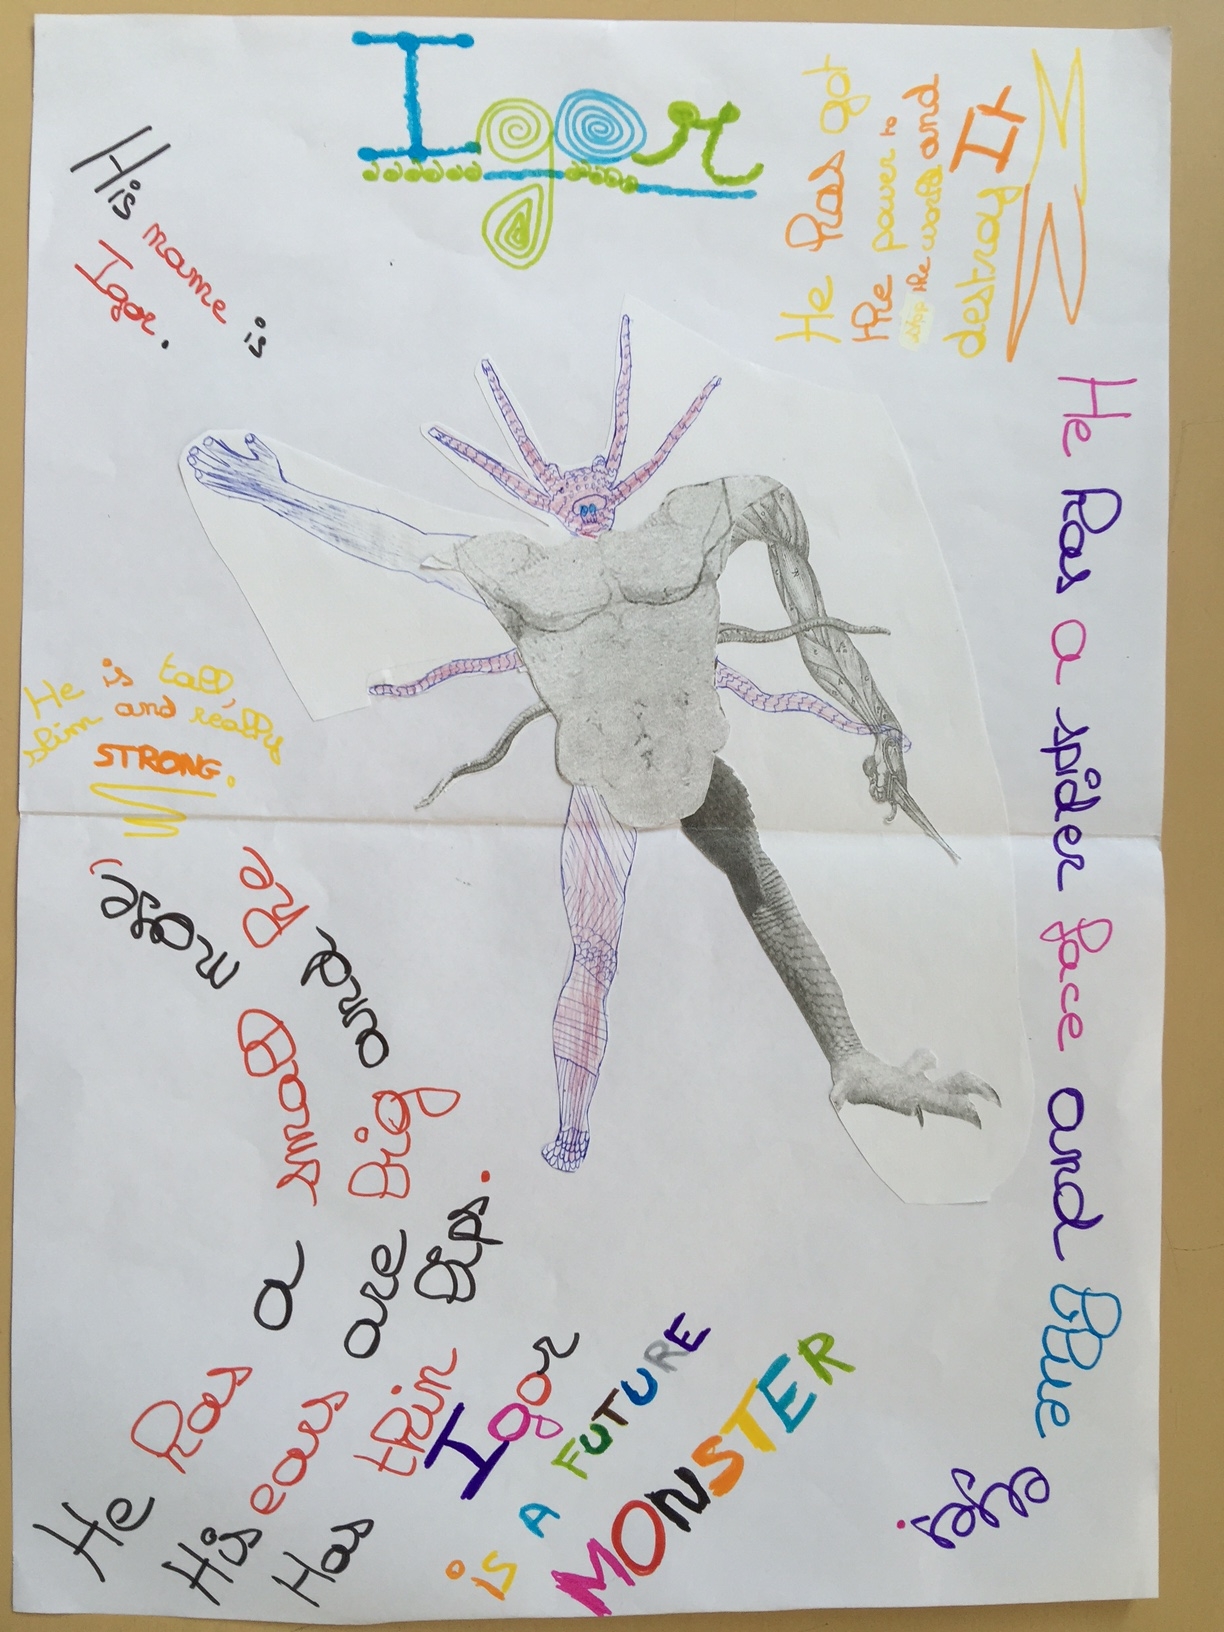 Igor
His name is
Igor.
He has got
the power to
stop the world and
destroy It
He has a spider face and blue
eyes.
He is tall,
slim and really
STRONG.
He has a small nose,
His ears are big and he
Has thin lips.
Igor
is A FUTURE
MONSTER